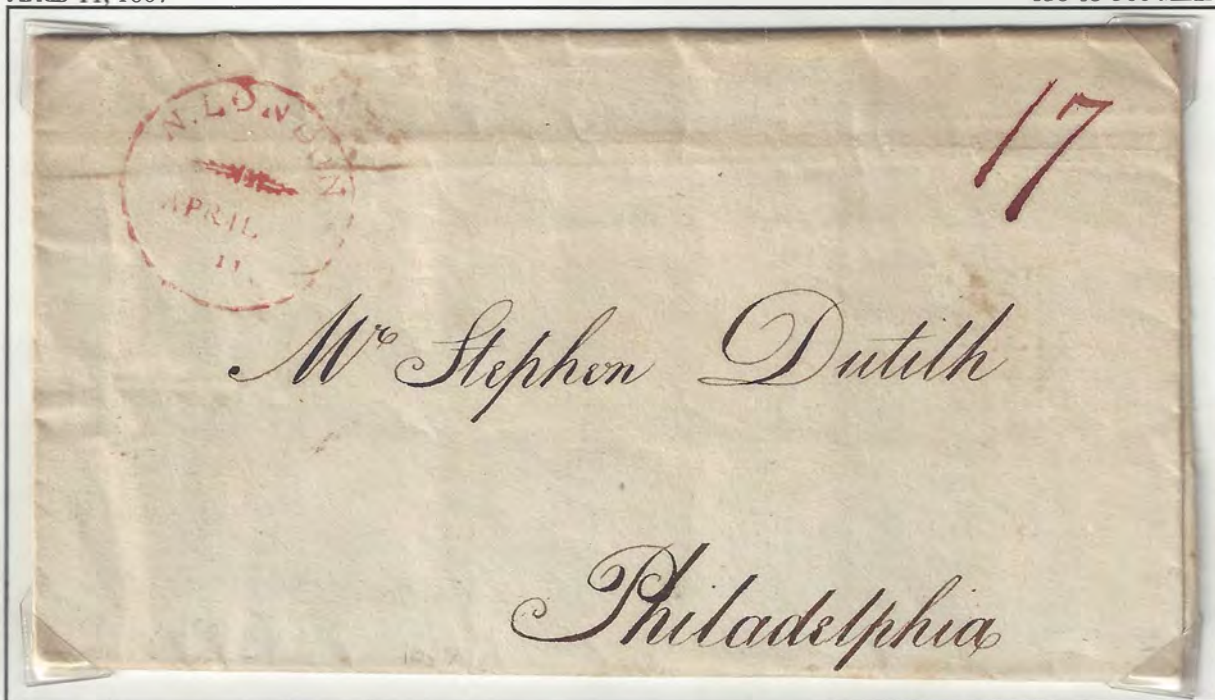 N. LONDON
APRIL
11
17
Mr Stephen Dutilh
Philadelphia